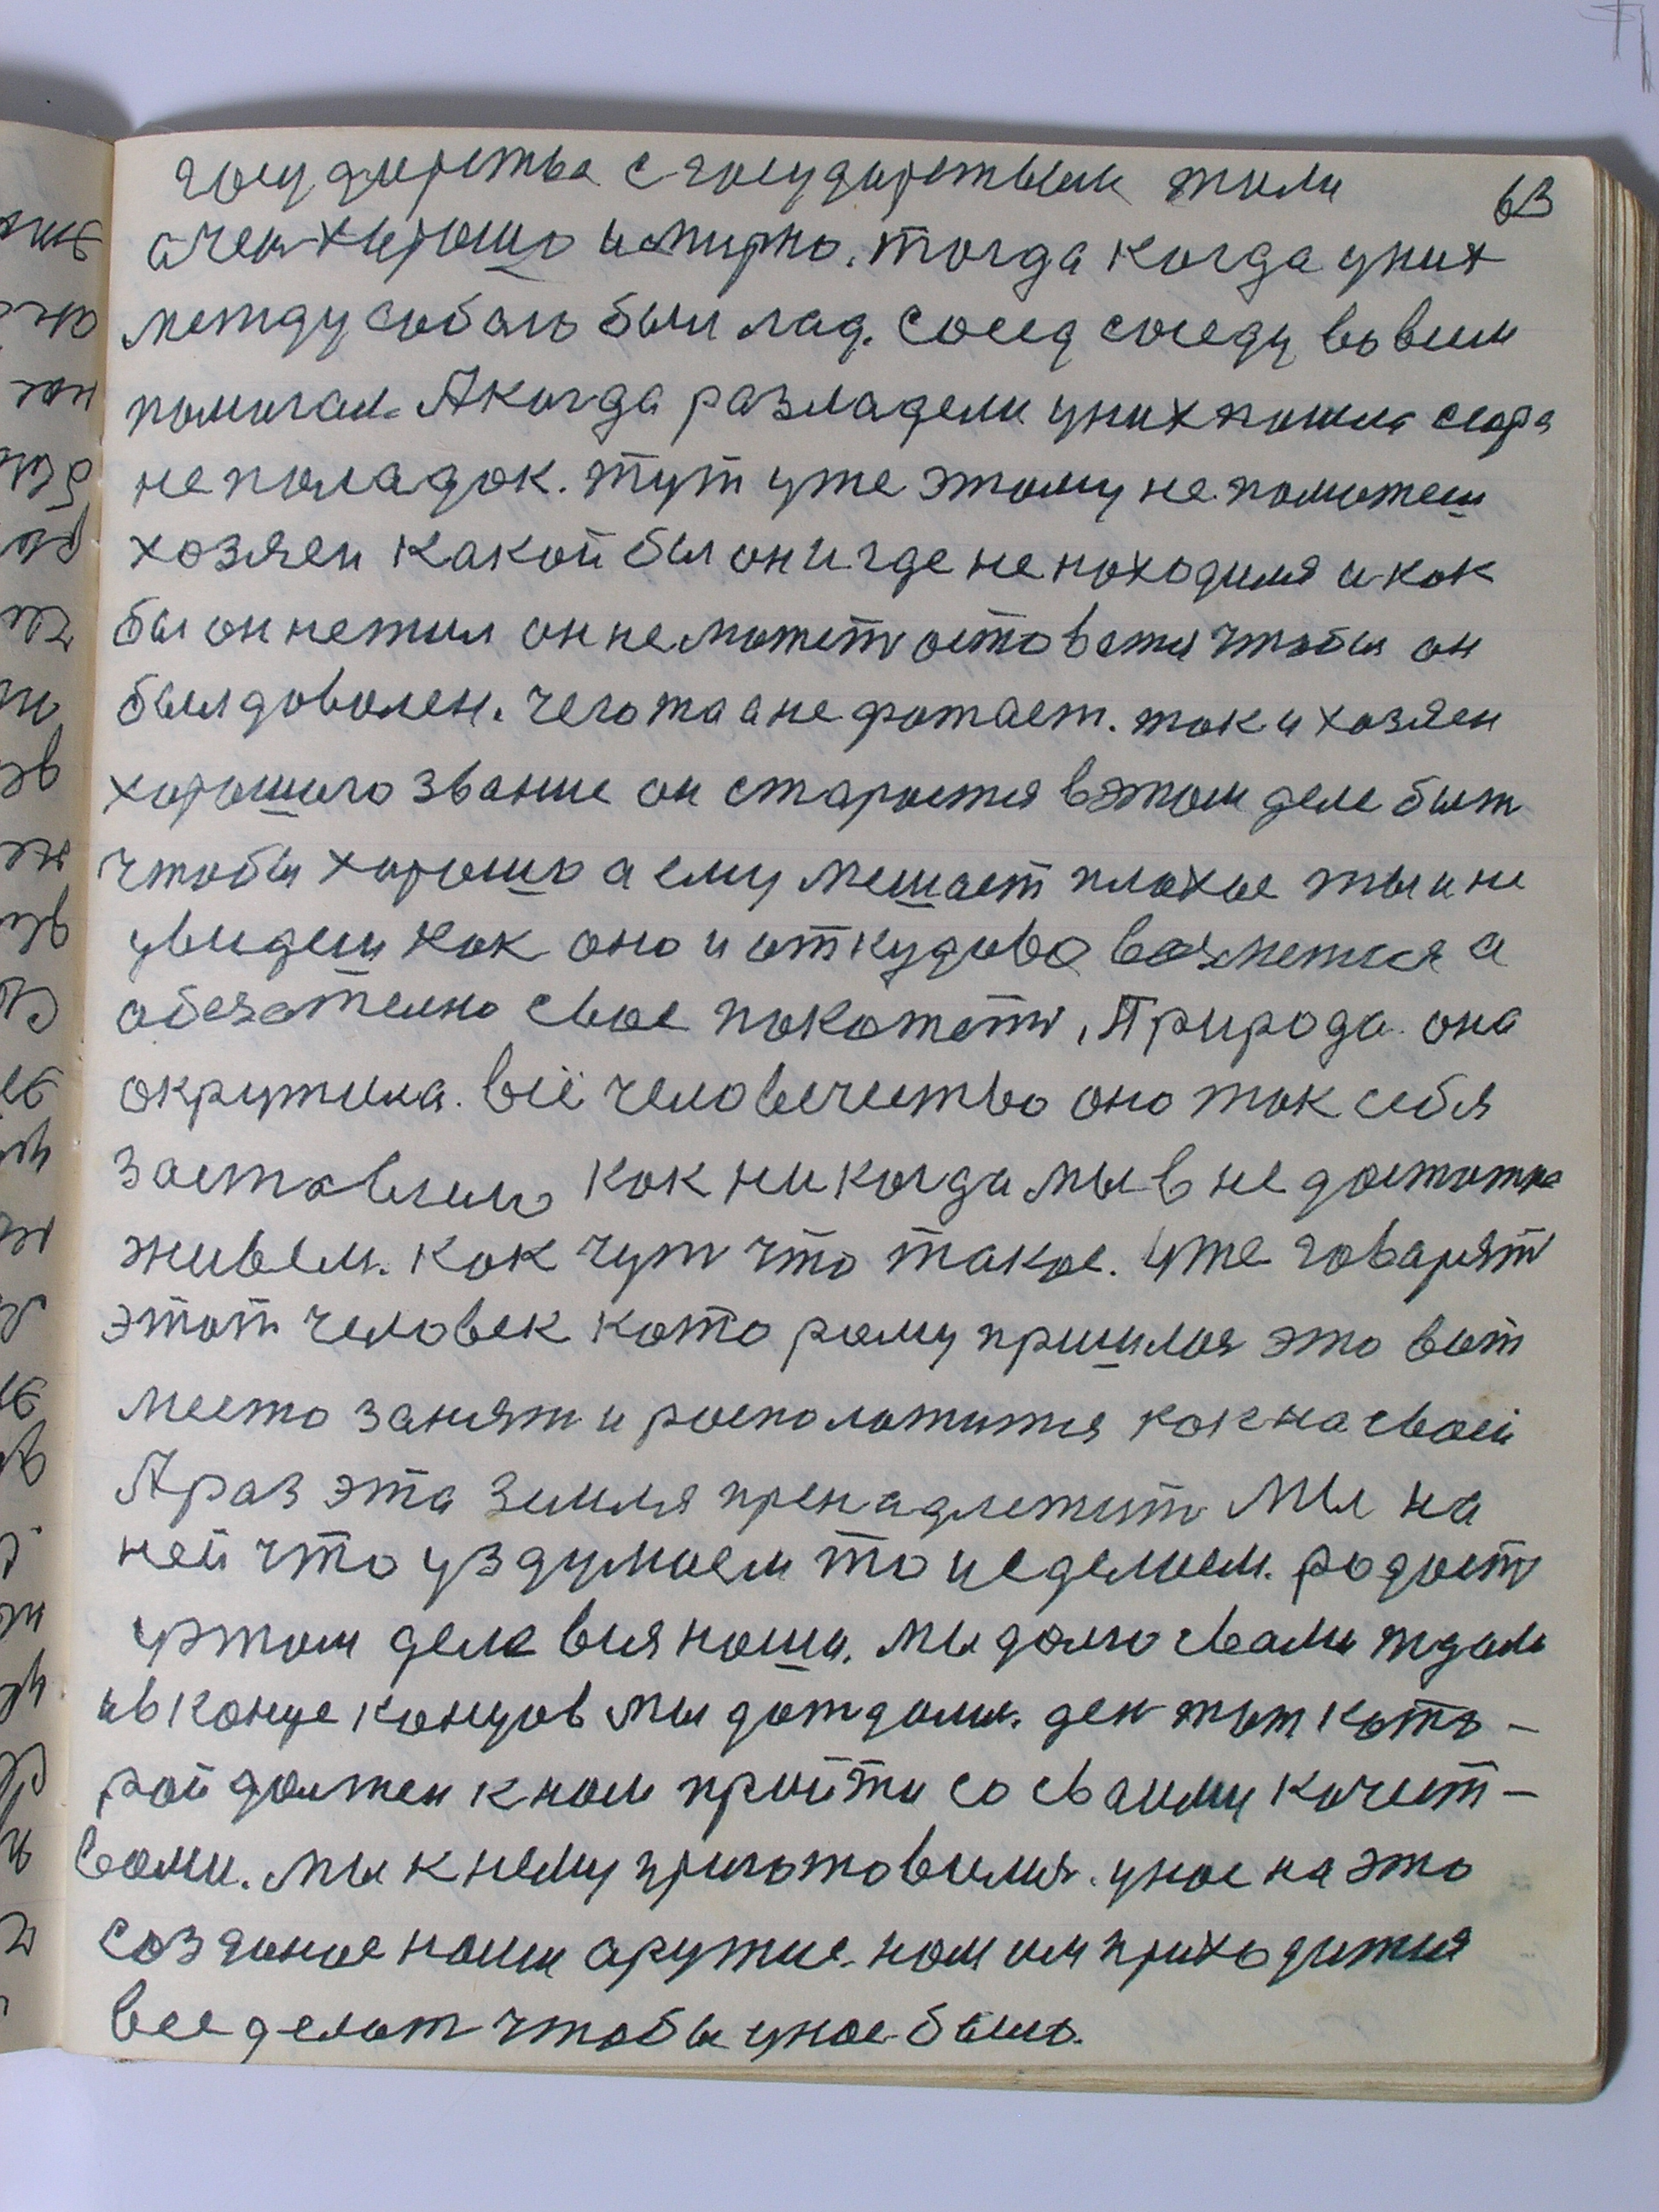 63
государства с государствам жили
очен хорошо и мирно. тогда когда уних
между собою был лад. Сосед соседу во всем
помогал. А когда разладели уних пошла сюда
не поладок. тут уже этому не поможеш
хозяен какой бы он и где не находился и как
бы он не жил он не может остоватся чтобы он
был доволен. чегото а не фатает. так и хозяен
хорошого звание он старается в этом деле быт
чтобы хорошо а ему мешает плохое ты и не
увидеш как оно и откудова возметься а
обезателно свое покажеть, Природа она
окружила всё человечество оно так себя
заставило как никогда мы в не достатке
живем. как чуть что такое. уже говарять
этот человек кото рому пришлося это вот
место занять и росположится как на своей
А раз эта земля пренадлежить мы на
ней что уздумаем то и сделаем. радость
у этом дела вся наша. мы долго с вами ждали
и в конце концов мы дождалис. ден тот кото-
рой должен к нам прийти со своими качест-
вами. мы к нему приготовилися. у нас на это
созданое наше аружие. нам им приходится
все делат чтобы у нас было.